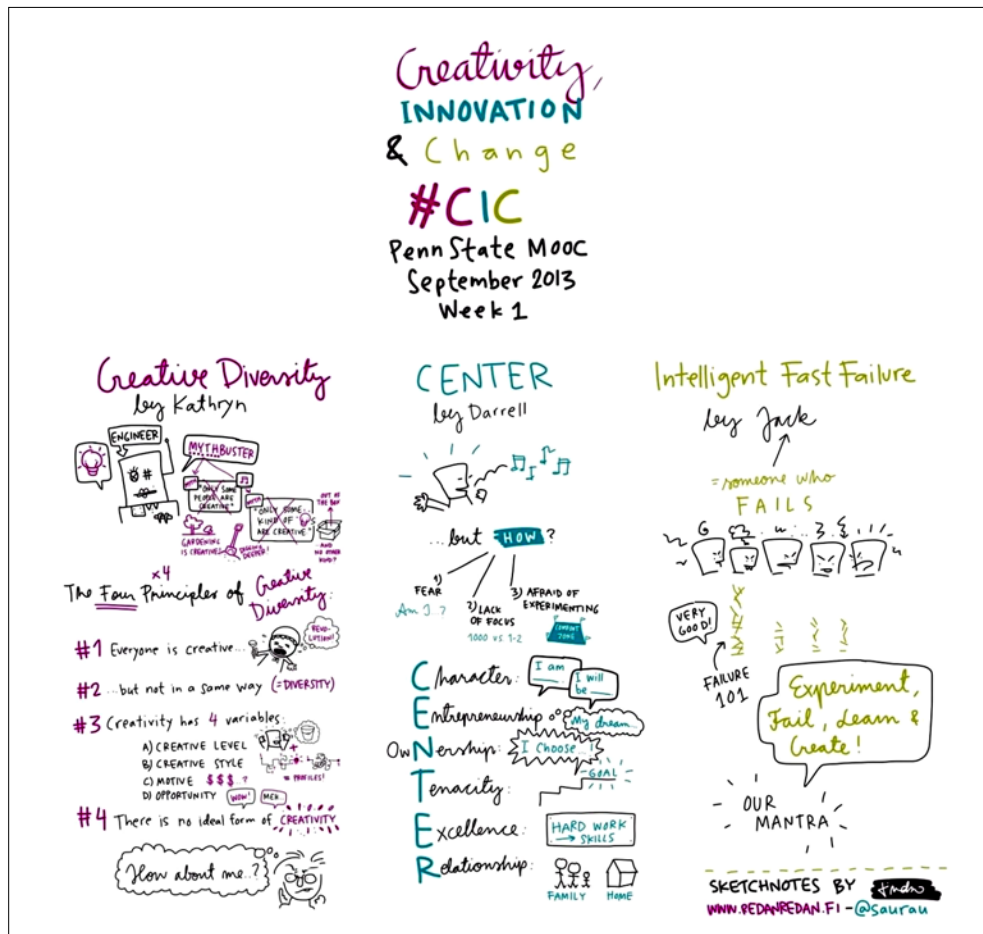 Creativity,
INNOVATION
& Change
#CIC
Penn State MOOC
September 2013
Week 1
Creative Diversity
by Kathryn
ENGINEER
MYTHBUSTER
MYTH
"ONLY SOME
PEOPLE ARE
CREATIVE"
MYTH
"ONLY SOME
KIND OF
ARE CREATIVE"
OUT OF
THE BOX
AND
NO OTHER
KIND?
GARDENING
IS CREATIVE!
DEEPER!
x4
The Four Principles of Creative
Diversity:
#1 Everyone is creative...
REVO-
LUTION!
#2 ...but not in a same way (=DIVERSITY)
#3 Creativity has 4 variables:
A) CREATIVE LEVEL
B) CREATIVE STYLE
C) MOTIVE $$$..?
= PROFILES!
D) OPPORTUNITY
WOW!
MEH..
#4 There is no ideal form of CREATIVITY
How about me..?
CENTER
by Darrell
...but HOW?
1)
FEAR
Am I..?
2) LACK
OF FOCUS
1000 vs. 1-2
3) AFRAID OF
EXPERIMENTING
COMFORT
ZONE
Character:
I am
I will
be
Entrepreneurship
My dream...
OwNership:
I Choose...!
Tenacity:
GOAL
Excellence:
HARD WORK
→ SKILLS
Relationship:
FAMILY
HOME
Intelligent Fast Failure
by Jack
=someone who
FAILS
VERY
GOOD!
FAILURE
101
Experiment,
Fail, Learn &
Create!
OUR
MANTRA
SKETCHNOTES BY
WWW.REDANREDAN.FI - @saurau